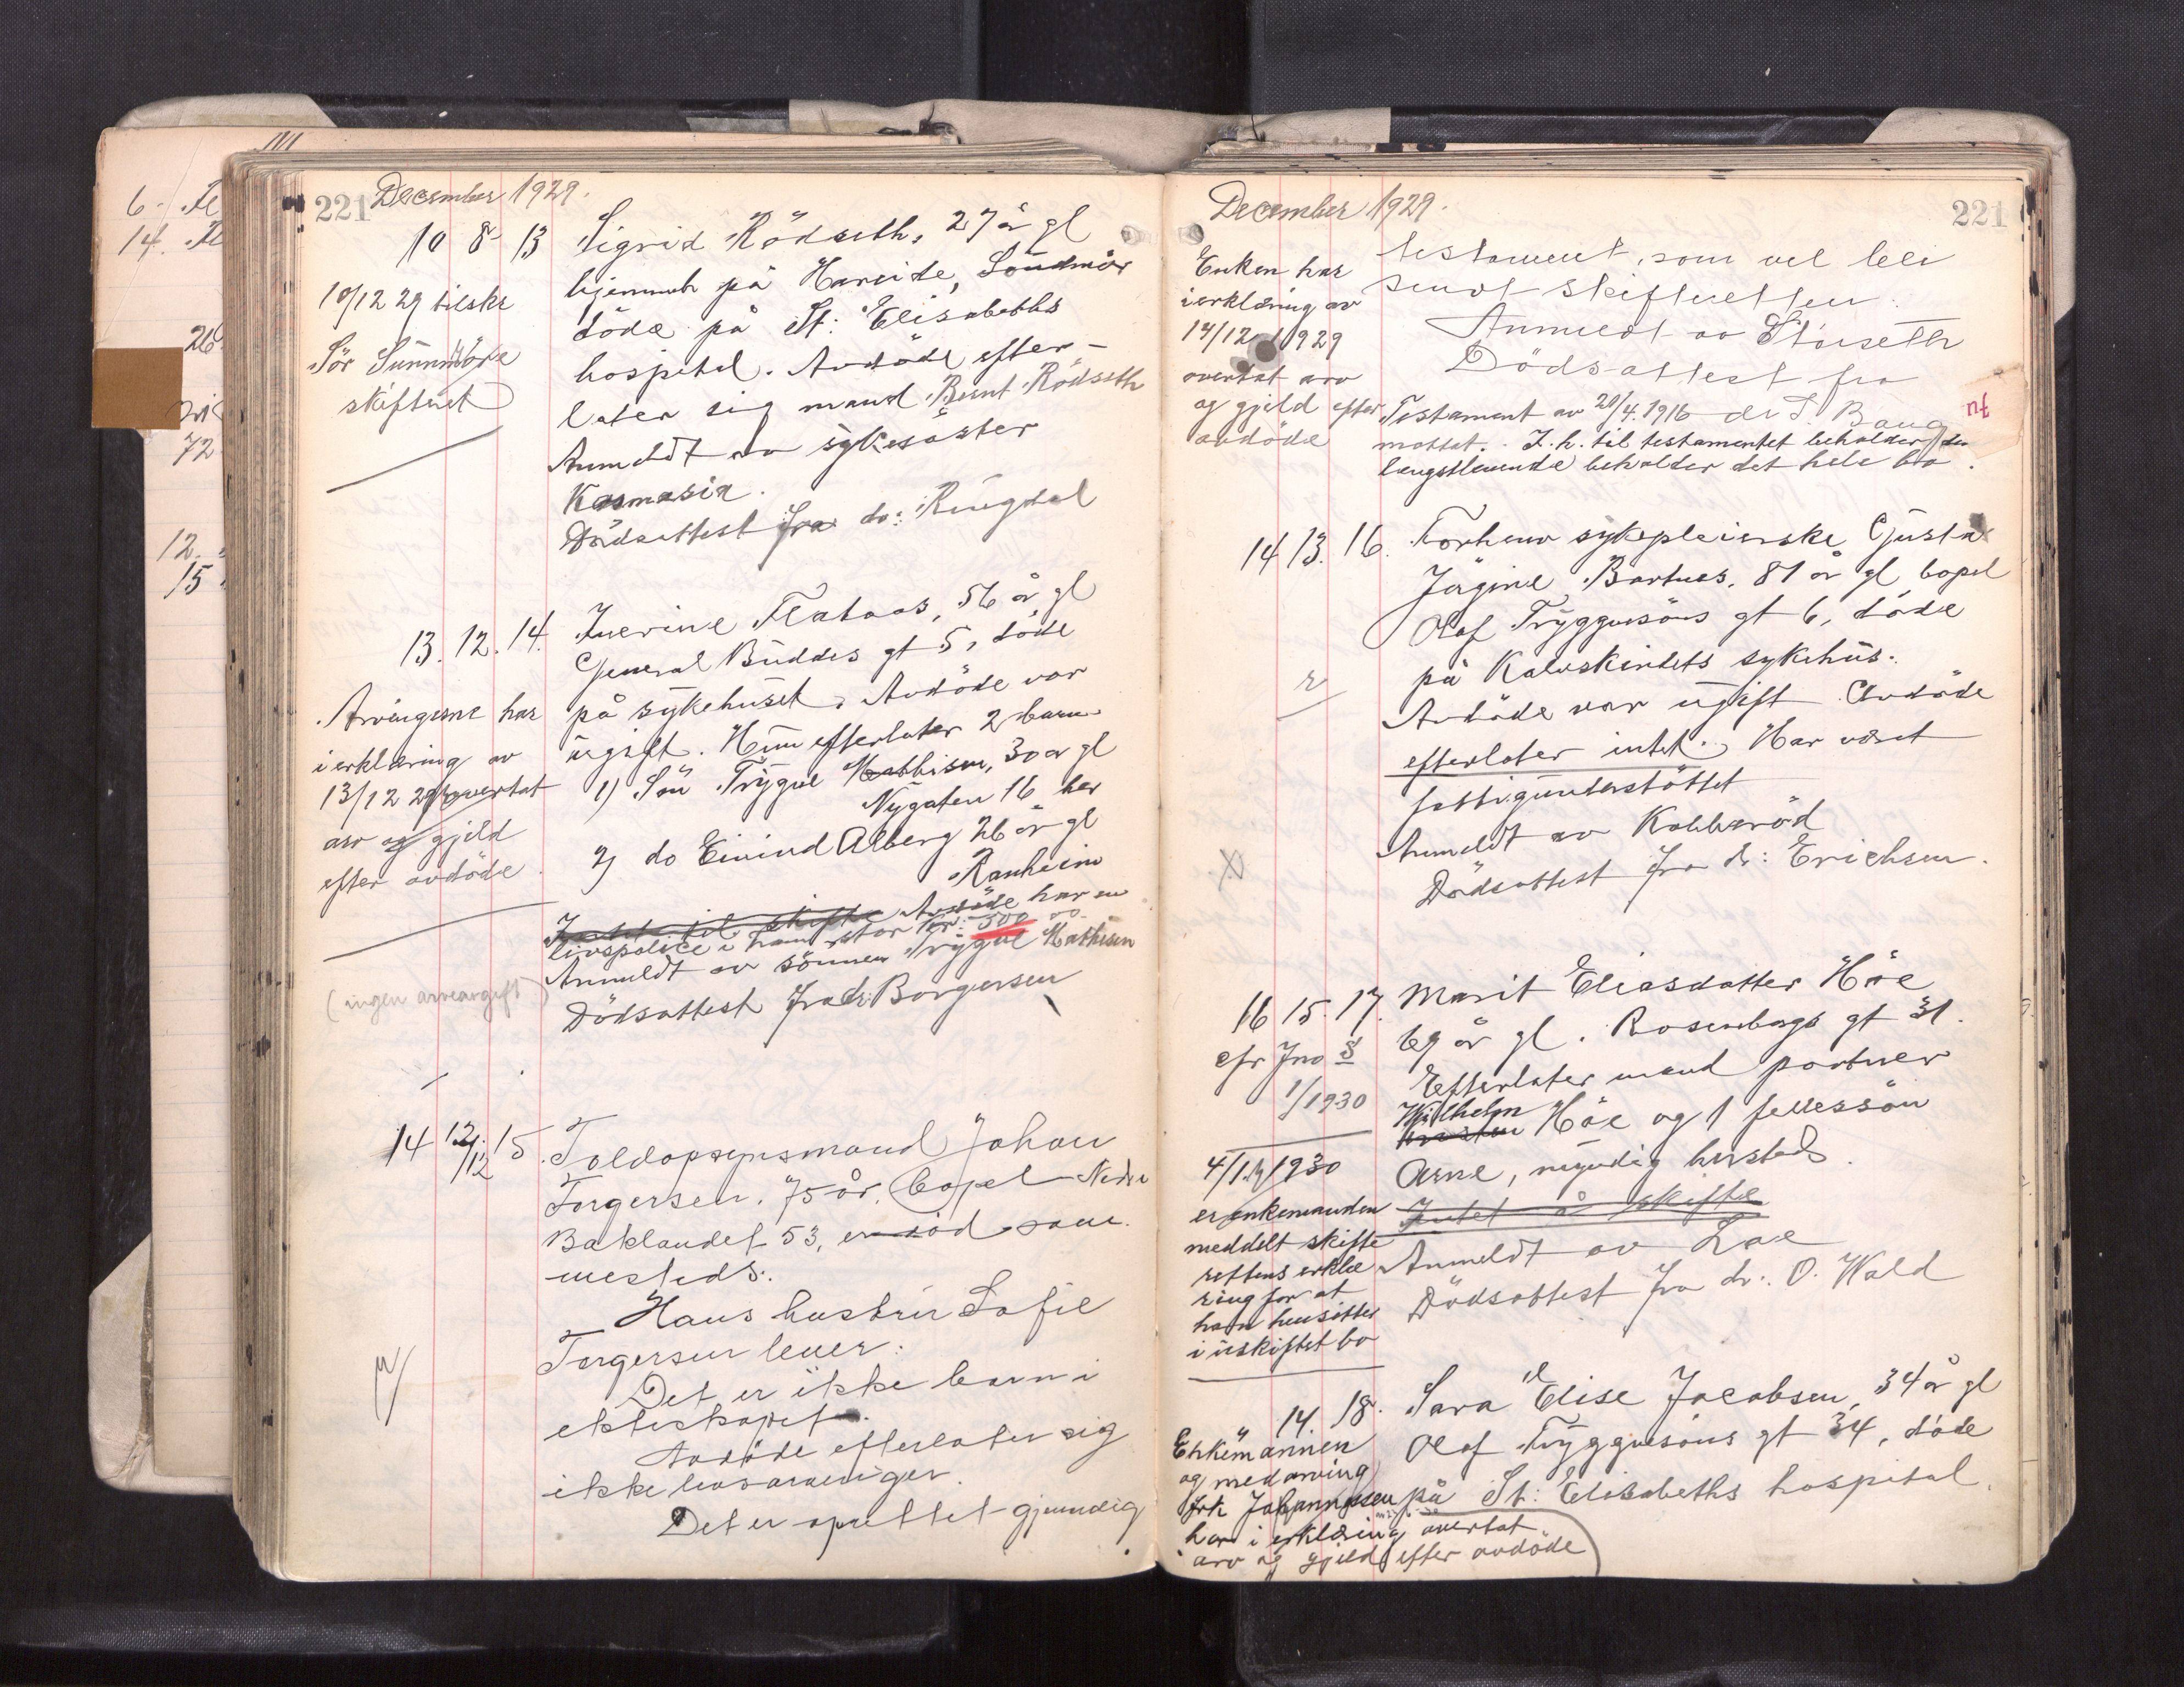 221 December 1929.
10 8 13 Sigrid Rödseth, 27 år gl
hjemmeh på Hareide, Söndmör
döde på St: Elisabeths
hospital. Avdöde efter-
later sig mand Bernt Rödseth
Anmeldt av sykesöster
Kosmasia.
Dödsattest fra dr: Ringdal
10/12 29 tilskr
Sör Sunnmöre
skifteret
13. 12. 14. Inerine Flataas, 56 år gl
General Buddes gt 5, döde
på sykehuset. Avdöde var
ugift. Hun efterlater 2 barn
1) Sön Trygve Mathisen, 30 år gl
Nygaten 16 her
2) do Eivind Alberg 26 år gl
Ranheim
Intet til skifte Avdöde har en
livspolice i stor kr: 500 00
Anmeldt av sönnen Trygve Mathisen
Dödsattest fra dr: Borgersen
Arvingerne har
i erklæring av
13/12 29 overtat
arv og gjeld
efter avdöde.
(ingen arveavgift)
14 12/12 15. Toldopsynsmand Johan
Torgersen. 75 år, bopel Nedre
Baklandet 53, er död sam-
mesteds.
Hans hustru Sofie
Torgersen lever.
Det er ikke barn i
ekteskapet.
Avdöde efterlater sig
ikke livsarvinger.
Det er oprettet gjensidig
December 1929. 221
testament, som vel bli
sendt skifteretten.
Anmeldt av Störseth
Dödsattest fra
dr S. Baug
Testament av 20/4. 1916
mottat. I. h. til testamentet beholder den
lengstlevende beholder det hele bo.
Enken har
i erklæring av
14/12 1929
overtat arv
og gjeld efter
avdöde
14 13. 16. Forhenv sykepleierske Gusta
Jörgine Bartnes, 81 år gl bopel
Olaf Tryggvesöns gt 6, döde
på Kalvskindets sykehus.
Avdöde var ugift. Avdöde
efterlater intet. Har været
fattigunderstöttet
Anmeldt av Kobberöd
Dödsattest fra dr: Erichsen.
16 15. 17. Marit Eliasdatter Höe
69 år gl. Rosenborgs gt 31.
Efterlater mand portner
Wilhelm
Höe og 1 fellessön
Arne, myndig hersteds.
Intet å skifte
Anmeldt av Lae
Dödsattest fra dr: O. Wald
cfr Jno 8
1/1930
4/1 1930
er enkemanden
meddelt skifte
rettens erklæ
ring for at
han hensitter
i uskiftet bo
14 18. Sara Elise Jacobsen, 34 år gl
Olaf Tryggvesöns gt 34, döde
på St: Elisabeths hospital.
Enkemannen
og medarving
frk Johannesen
har i erklæring overtat
arv og gjeld efter avdöde